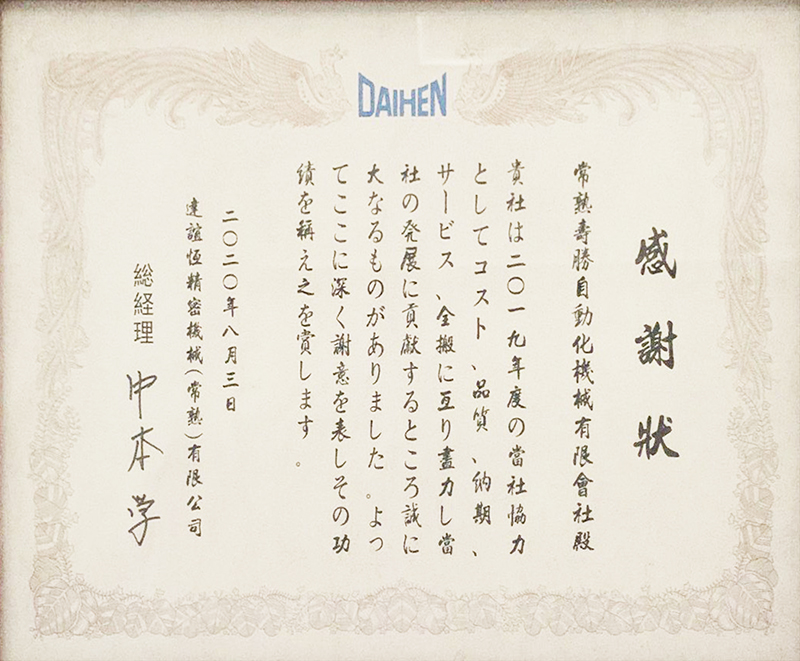 DAIHEN
感謝狀
常熟壽勝自動化機械有限會社殿
貴社は二〇一九年度の當社協力
としてコスト、品質、納期、
サービス、全搬に亙り盡力し當
社の発展に貢献するところ誠に
大なるものがありました。よっ
てここに深く謝意を表しその功
績を称え之を賞します。
二〇二〇年八月三日
達誼恒精密機械(常熟)有限公司
総経理 中本学